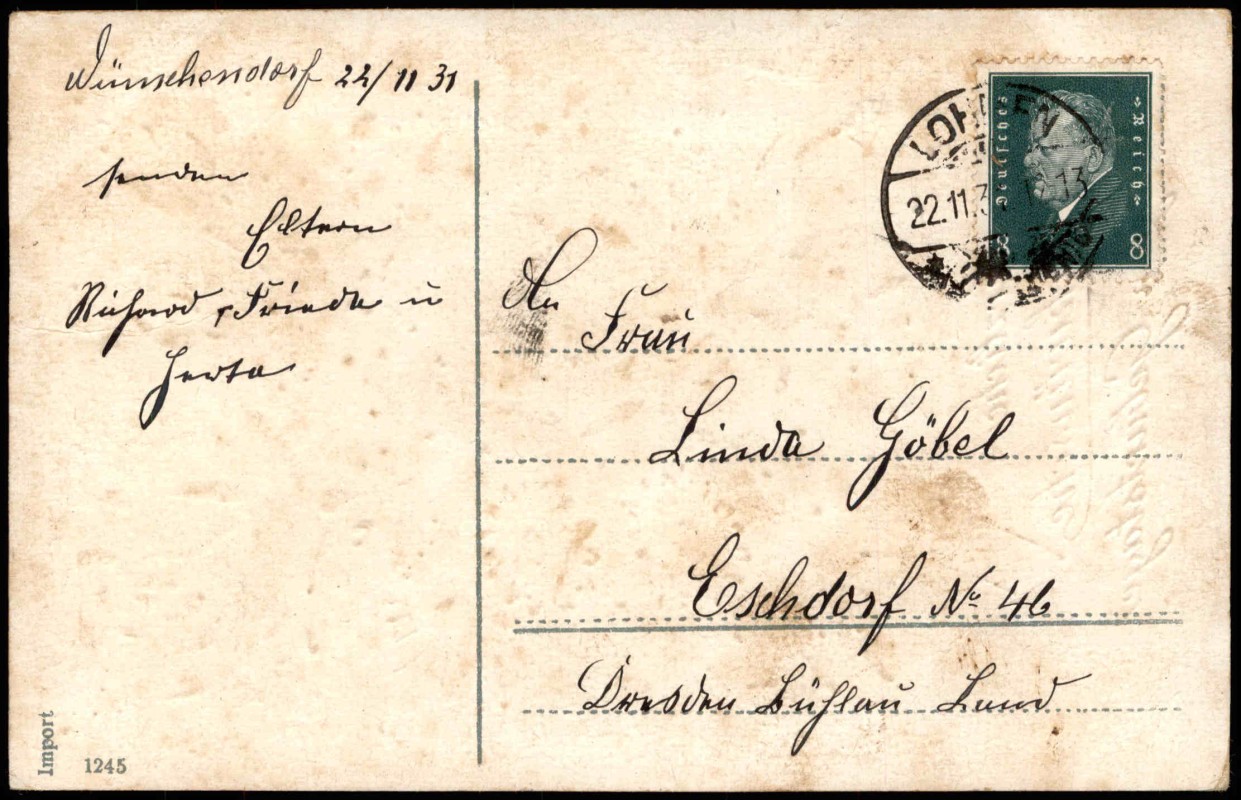 Wünschendorf 22/11 31
senden
Eltern
Richard, Frieda u
Herta
Import
1245
Deutsches Reich
8 8
LOHMEN
22.11.3
13
An
Frau
Linda Göbel
Eschdorf No 46
Dresden Bühlau Land